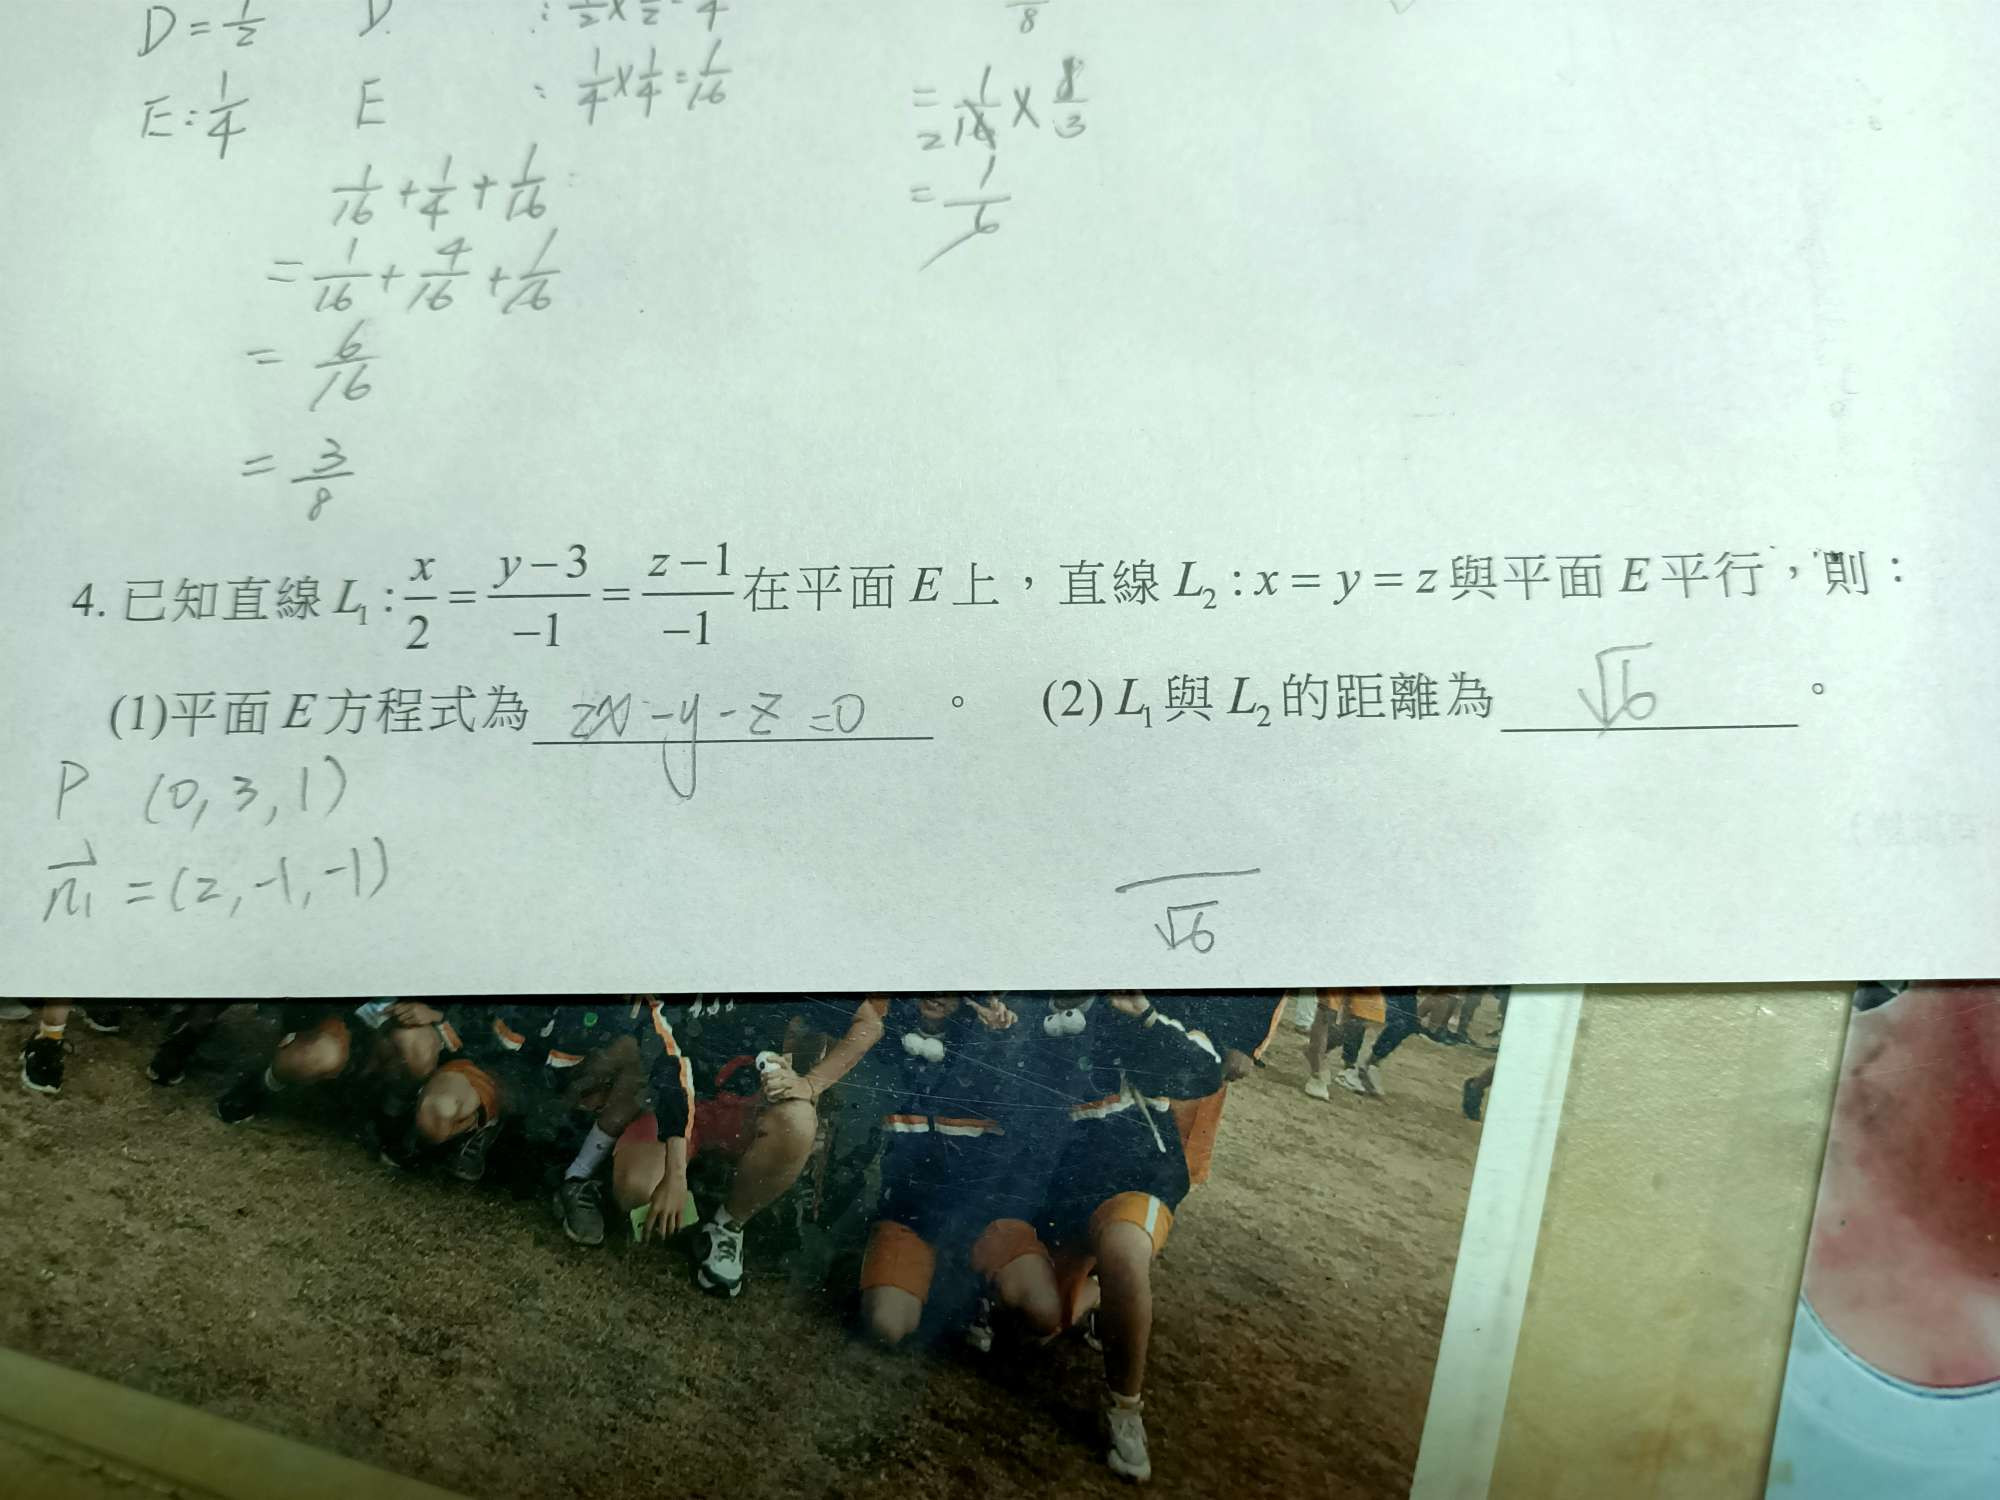 D = 1/2 D : 1/2 × 1/2 = 1/4 8
E : 1/4 E : 1/4 × 1/4 = 1/16 = 1/16 × 8/3
2
1/16 + 1/4 + 1/16 = 1/6
= 1/16 + 4/16 + 1/16
= 6/16
= 3/8
4. 已知直線 L₁ : x/2 = (y−3)/−1 = (z−1)/−1 在平面 E 上,直線 L₂ : x = y = z 與平面 E 平行,則:
(1)平面 E 方程式為 2x - y - z = 0 。 (2) L₁ 與 L₂ 的距離為 √6 。
P (0, 3, 1)
n₁ = (2, -1, -1)
√6